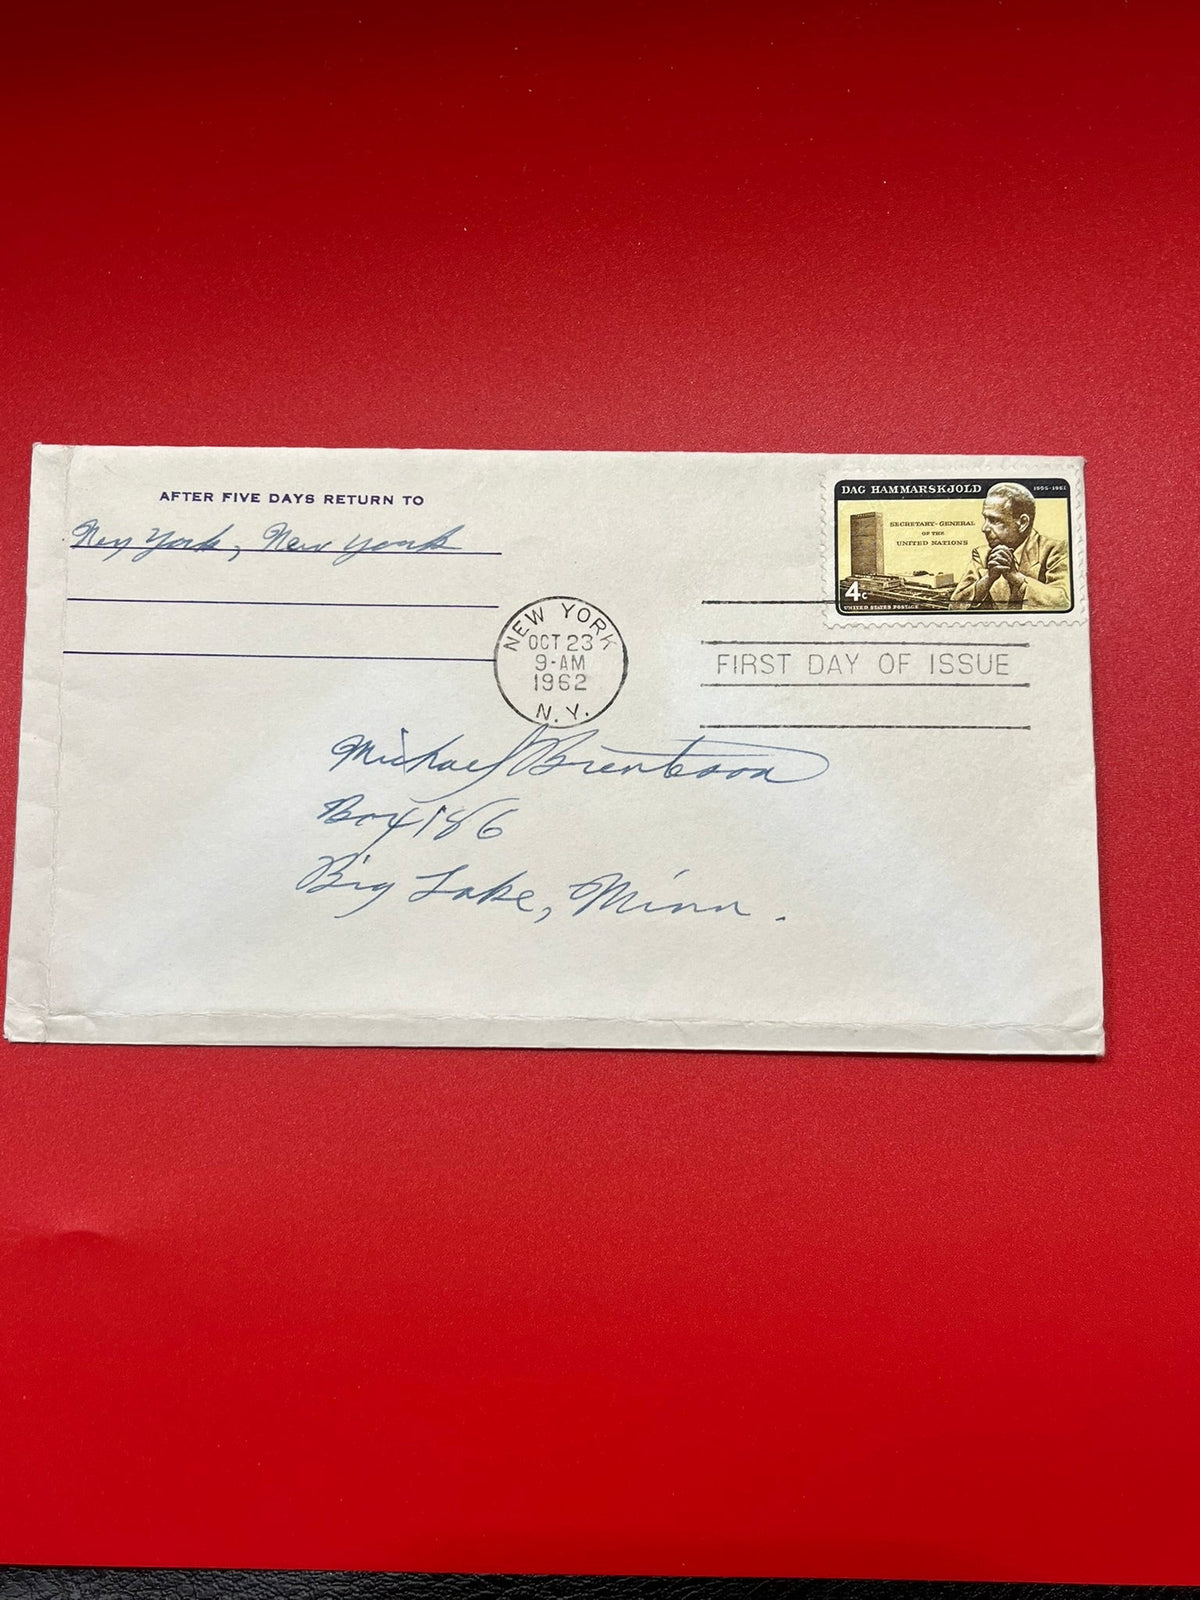 AFTER FIVE DAYS RETURN TO
New York, New York
DAG HAMMARSKJOLD 1905-1961
SECRETARY-GENERAL
OF THE
UNITED NATIONS
4c
UNITED STATES POSTAGE
NEW YORK
OCT 23
9-AM
1962
N.Y.
FIRST DAY OF ISSUE
Michael
Box 186
Big Lake, Minn.